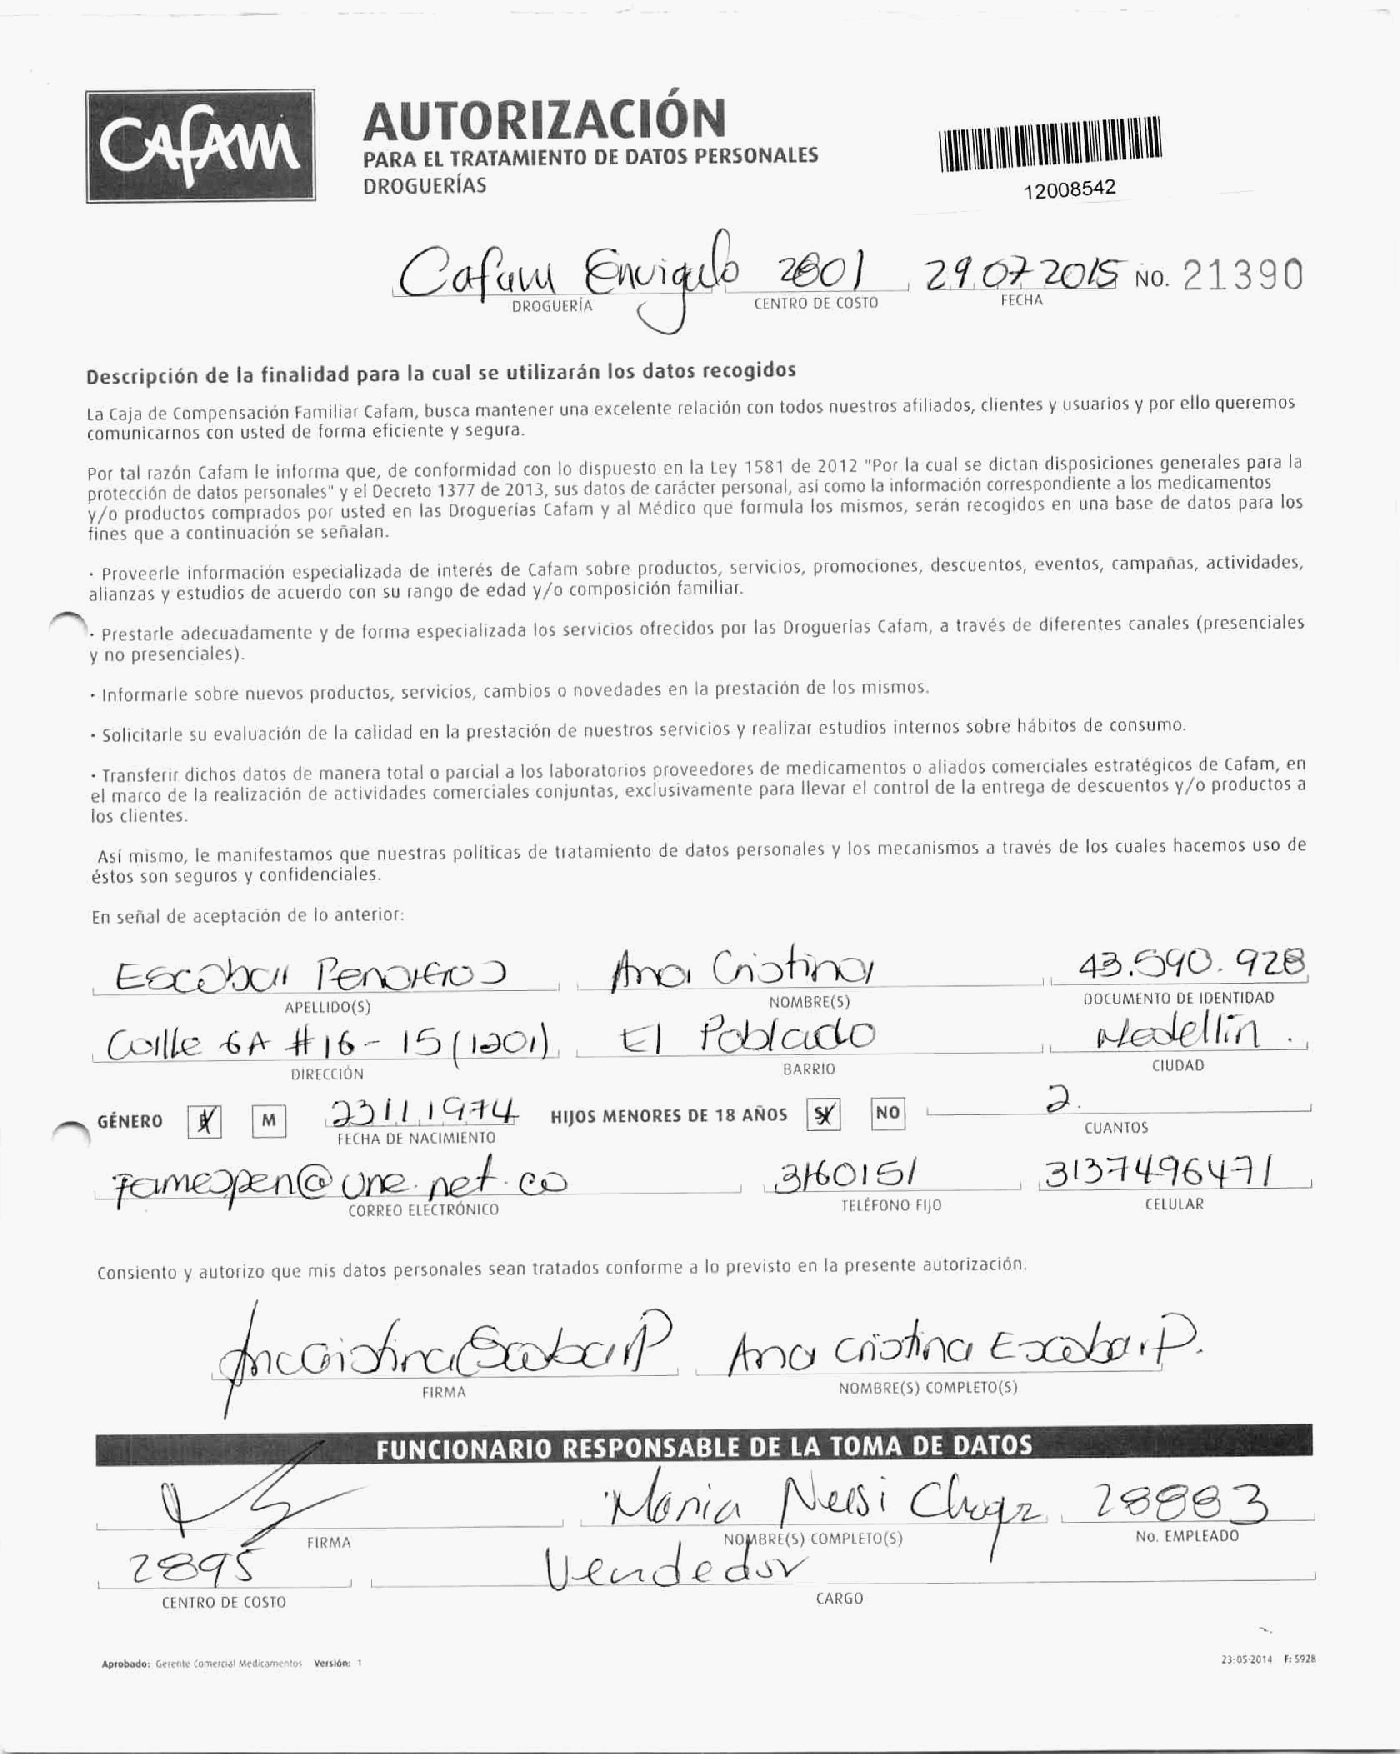 CAFAM
AUTORIZACIÓN
PARA EL TRATAMIENTO DE DATOS PERSONALES
DROGUERÍAS
12008542
Cafam Envigado 2801 29.07.2015 No. 21390
DROGUERÍA CENTRO DE COSTO FECHA
Descripción de la finalidad para la cual se utilizarán los datos recogidos
La Caja de Compensación Familiar Cafam, busca mantener una excelente relación con todos nuestros afiliados, clientes y usuarios y por ello queremos
comunicarnos con usted de forma eficiente y segura.
Por tal razón Cafam le informa que, de conformidad con lo dispuesto en la Ley 1581 de 2012 "Por la cual se dictan disposiciones generales para la
protección de datos personales" y el Decreto 1377 de 2013, sus datos de carácter personal, así como la información correspondiente a los medicamentos
y/o productos comprados por usted en las Droguerías Cafam y al Médico que formula los mismos, serán recogidos en una base de datos para los
fines que a continuación se señalan.
· Proveerle información especializada de interés de Cafam sobre productos, servicios, promociones, descuentos, eventos, campañas, actividades,
alianzas y estudios de acuerdo con su rango de edad y/o composición familiar.
· Prestarle adecuadamente y de forma especializada los servicios ofrecidos por las Droguerías Cafam, a través de diferentes canales (presenciales
y no presenciales).
· Informarle sobre nuevos productos, servicios, cambios o novedades en la prestación de los mismos.
· Solicitarle su evaluación de la calidad en la prestación de nuestros servicios y realizar estudios internos sobre hábitos de consumo.
· Transferir dichos datos de manera total o parcial a los laboratorios proveedores de medicamentos o aliados comerciales estratégicos de Cafam, en
el marco de la realización de actividades comerciales conjuntas, exclusivamente para llevar el control de la entrega de descuentos y/o productos a
los clientes.
Así mismo, le manifestamos que nuestras políticas de tratamiento de datos personales y los mecanismos a través de los cuales hacemos uso de
éstos son seguros y confidenciales.
En señal de aceptación de lo anterior:
Escobar Ana Cristina 43.590.928
APELLIDO(S) NOMBRE(S) DOCUMENTO DE IDENTIDAD
Calle 6A #16-15 (1201) El Poblado Medellin.
DIRECCIÓN BARRIO CIUDAD
GÉNERO M 23 11 1974 HIJOS MENORES DE 18 AÑOS SI NO 2.
FECHA DE NACIMIENTO CUANTOS
famespen@une.net.co 3160151 3137496471
CORREO ELECTRÓNICO TELÉFONO FIJO CELULAR
Consiento y autorizo que mis datos personales sean tratados conforme a lo previsto en la presente autorización.
Anacristina Escobar P Ana Cristina Escobar P.
FIRMA NOMBRE(S) COMPLETO(S)
FUNCIONARIO RESPONSABLE DE LA TOMA DE DATOS
Maria 28883
FIRMA NOMBRE(S) COMPLETO(S) No. EMPLEADO
2895 Vendedor
CENTRO DE COSTO CARGO
Aprobado: Gerente Comercial Medicamentos Versión: 1 23-05-2014 F: 5928